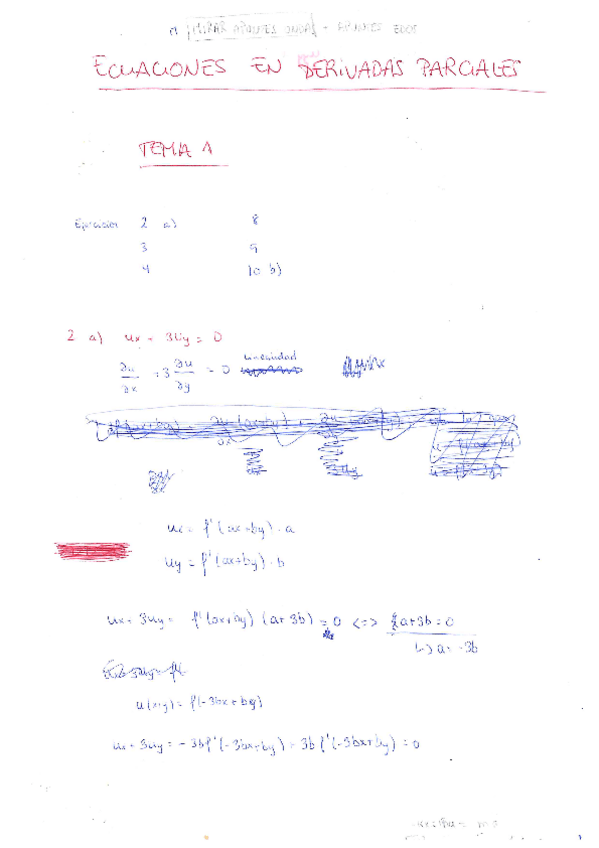 ECUACIONES EN DERIVADAS PARCIALES
TEMA 1
Ejercicios 2 a) 8
3 9
4 10 b)
2 a) ux + 3uy = 0
∂u/∂x + 3 ∂u/∂y = 0 linealidad
ux = f'(ax+by) · a
uy = f'(ax+by) · b
ux + 3uy = f'(ax+by) (a+3b) = 0 <=> a+3b = 0
↳ a = -3b
u(x,y) = f(-3bx+by)
ux + 3uy = -3b f'(-3bx+by) + 3b f'(-3bx+by) = 0